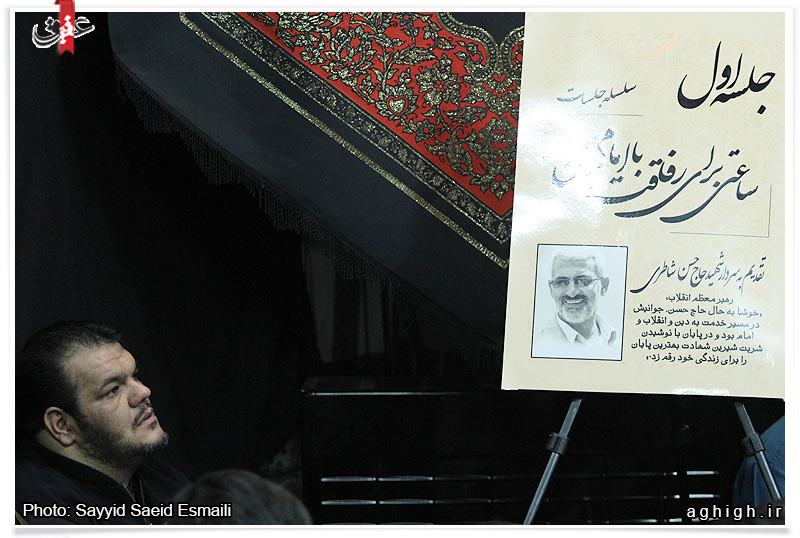 عقیق
جلسه اول
سلسله جلسات
ساعتی برای رفاقت با امام
تقدیم به سردار شهید حاج حسن شاطری
رهبر معظم انقلاب:
«خوشا به حال حاج حسن. جوانیش
در مسیر خدمت به دین و انقلاب و
امام بود و در پایان با نوشیدن
شربت شیرین شهادت بهترین پایان
را برای زندگی خود رقم زد.»
Photo: Sayyid Saeid Esmaili
aghigh.ir